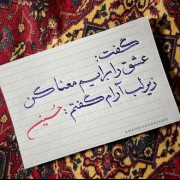 گفت:
عشق را برایم معنا کن
زیر لب آرام گفتم: حسین